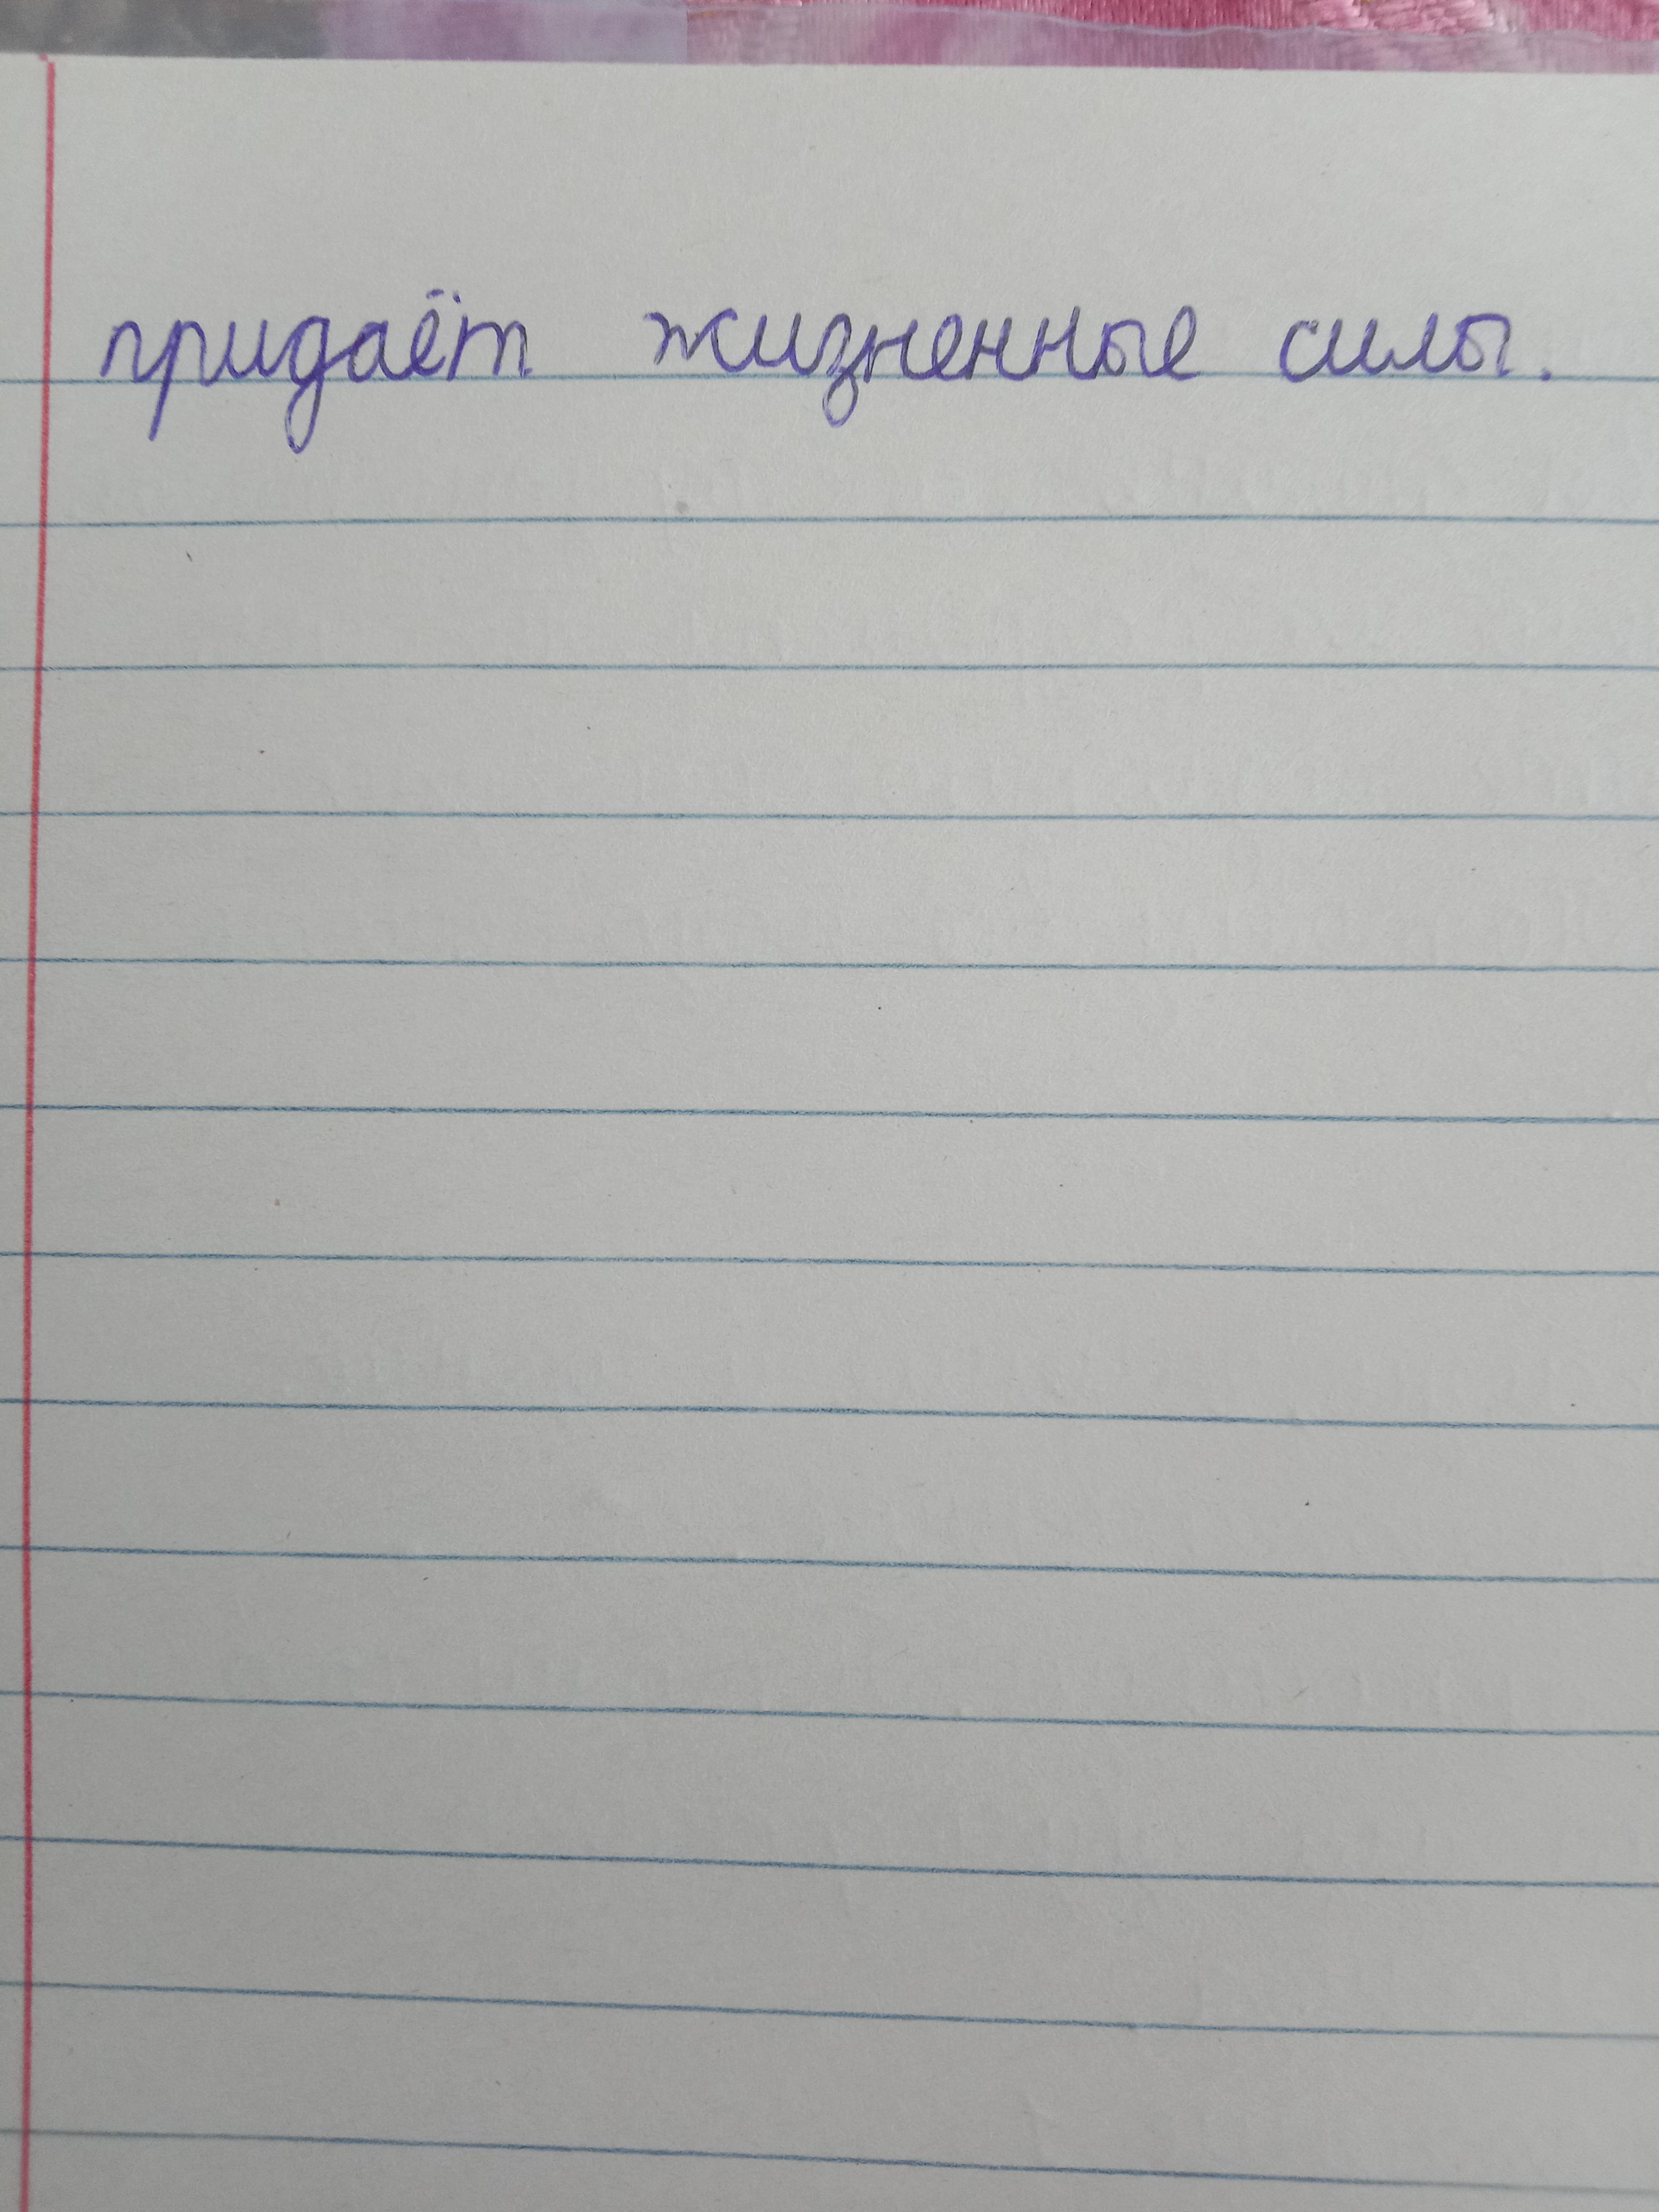 придаёт жизненные силы.